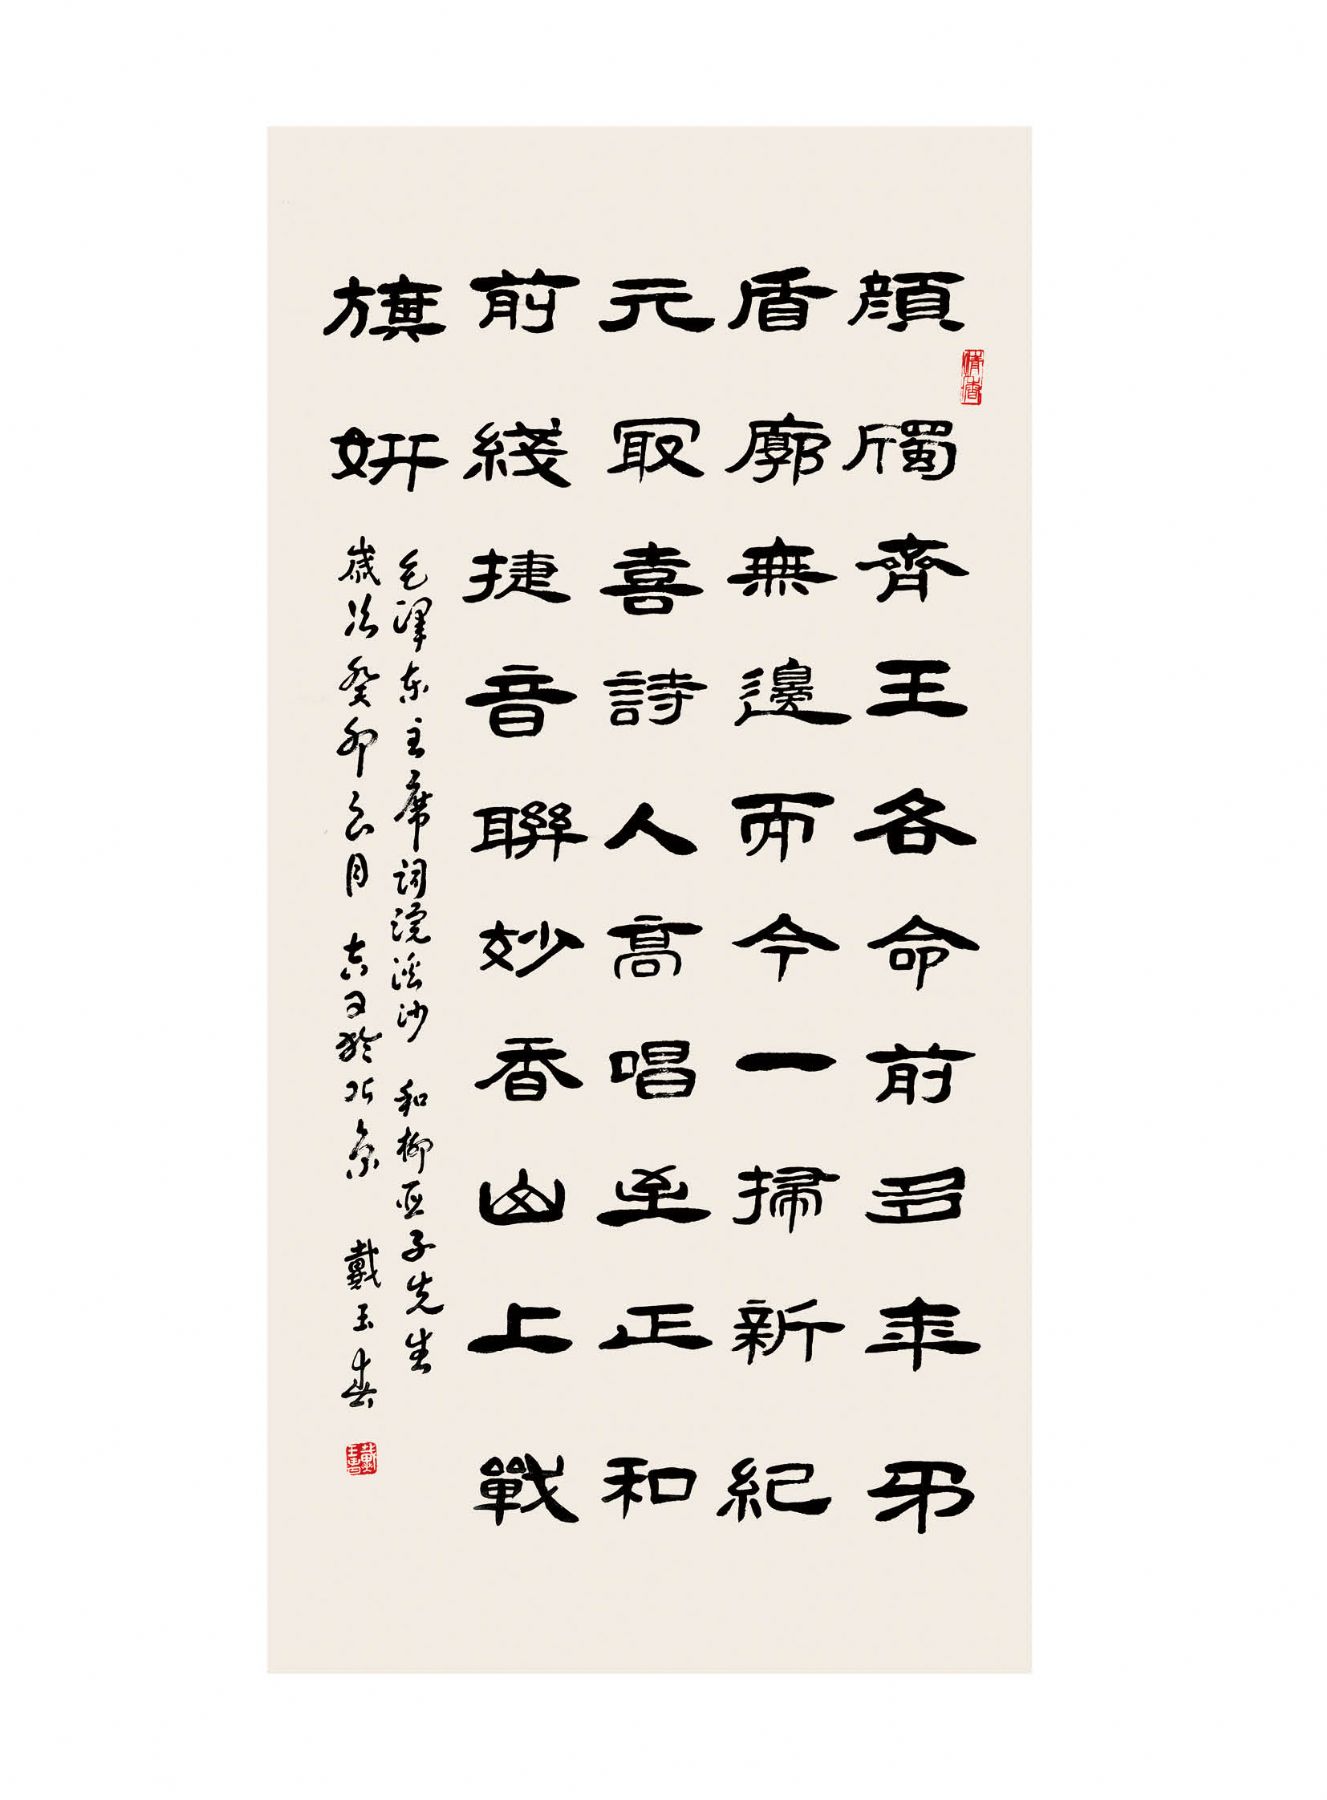 顏斶齊王各命前多年矛
盾廓無邊而今一掃新紀
元最喜詩人高唱至正和
前綫捷音聯妙香山上戰
旗妍
毛澤东主席詞浣溪沙 和柳亞子先生
歲次癸卯 月 吉日於北京 戴玉